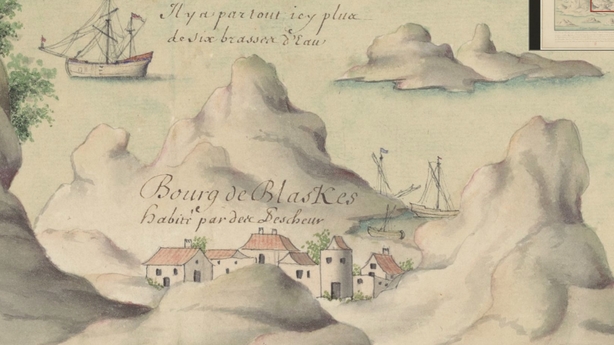 Il y a par tout icy plus
de six brasses d'Eau
Bourg de BlasKes
habité par des Pescheur